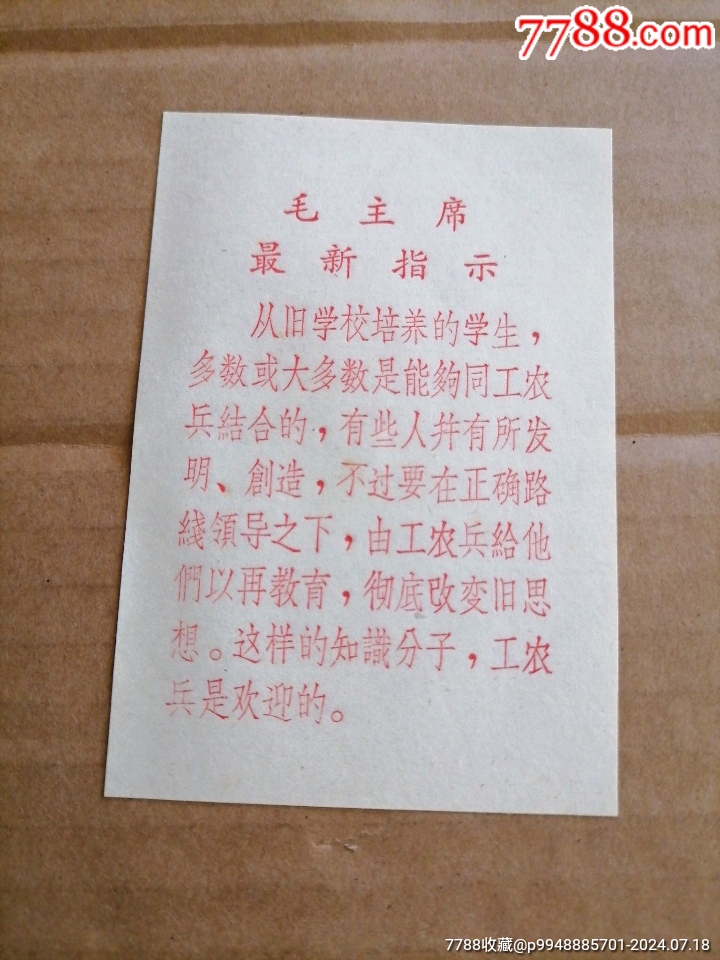 7788.com
毛主席
最新指示
从旧学校培养的学生，
多数或大多数是能夠同工农
兵結合的，有些人并有所发
明、創造，不过要在正确路
綫領导之下，由工农兵給他
們以再教育，彻底改变旧思
想。这样的知識分子，工农
兵是欢迎的。
7788收藏@p9948885701-2024.07.18